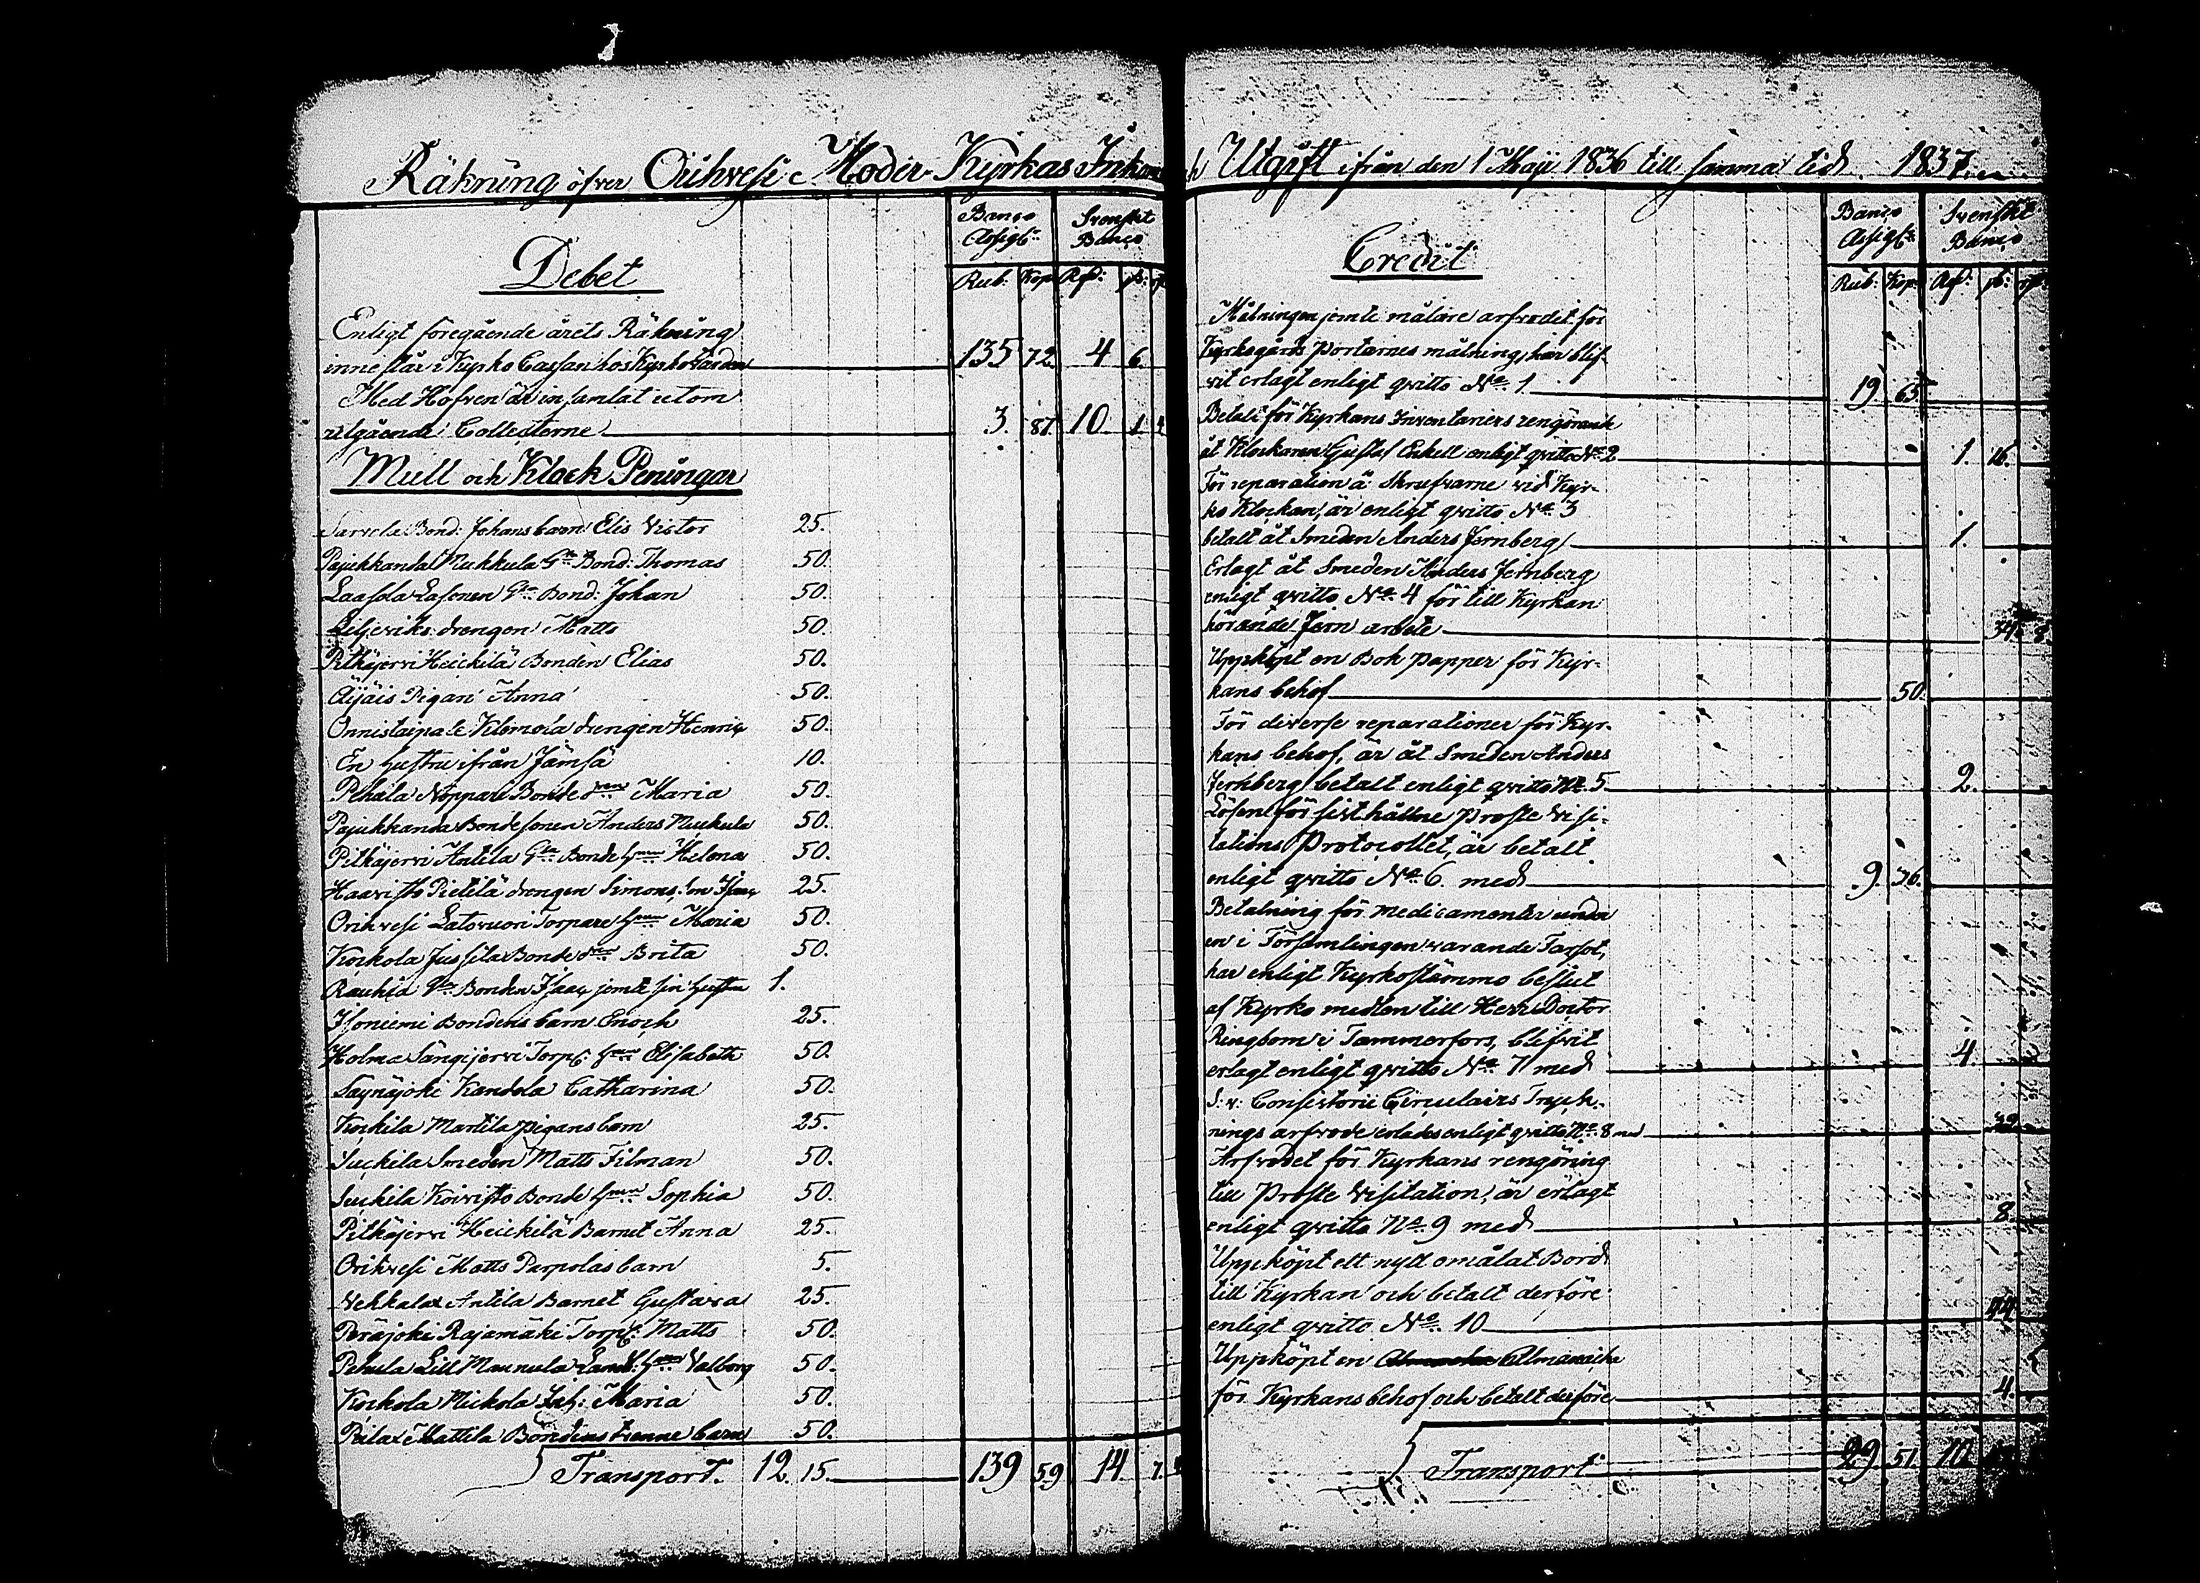 Räkning öfver Orihvesi Moder-Kyrkas Inkom
Debet
Banco Assigt: Svenskt Banco
Rub: Kop: Rd: sk: rst:
Enligt föregående årets Räkning
innestår i Kyrko Cassan hos Kyrkovärden 135 72. 4 6.
Med Hofven är insamlat utom
utgående Collecterne 3. 87. 10. 1.
Mull och Klock Peningar
Sarvela Bond: Johans barn Elis Victor 25.
Pajukkanda Mukkula Gla Bond: Thomas 50.
Laasola Lasonen Gla Bond: Johan 50.
Liljeviks drengen Matts 50.
Pitkäjervi Heickilä Bonden Elias 50.
Äijäis Pigan Anna 50.
Onnistaipale Klemola drengen Henric 50.
En hustru ifrån Jämsä 10.
Pehula Noppari Bonde Maria 50.
Pajukkanda Bondesonen Anders Mukula 50.
Pitkäjervi Antila Gla Bonde hun Helena 50.
Haavisto Pietilä drengen Simons son Isaac 25.
Orihvesi Latovuori Torpare hun Maria 50.
Kockola Jussila Bonde Brita 50.
Rauhia Gla Bonden Isaac jemte sin hustru 1.
Isoniemi Bondens barn Enoch 25.
Holma Sängijervi Torp: hun Elisabeth 50.
Säynäjoki Kandela Catharina 50.
Kockila Martila pigans barn 25.
Suckila Smeden Matts Filman 50.
Suckila Koivisto Bonde hun Sophia 50.
Pitkäjervi Heickilä Barnet Anna 25.
Orihvesi Matts Parpolas barn 5.
Vehkalax Antila Barnet Gustava 25.
Peräjoki Rajamäki Torp: Matts 50.
Pehula Lill Maunula hun Valborg 50.
Kockola Mickola Inh: Maria 50.
Pitlax Mattila Bondens tvenne barn 50.
Transport. 12. 15. 139 59 14 7.
h Utgift ifrån den 1 Maji 1836 till samma tid 1837
Credit
Banco Assigt: Svenskt Banco
Rub: Kop: Rd: sk: rst:
Målningen jemte målare arfvodet för
Kyrkogårds Portarnes målning, har blif-
vit erlagt enligt qvitto No. 1 19. 65.
Betalt för Kyrkans Inventariers rengörande
åt Klockaren Gustaf Enkell enligt qvitto No. 2 1. 16.
För reparation å Skrufvarne vid Kyr-
ko Klockan, är enligt qvitto No. 3
betalt åt Smeden Anders Jernberg 1.
Erlagt åt Smeden Anders Jernberg
enligt qvitto No. 4 för till Kyrkan
hörande Jern arbete 34. 8.
Uppköpt en Bok Papper för Kyr-
kans behof 50.
För diverse reparationer för Kyr-
kans behof, är åt Smeden Anders
Jernberg betalt enligt qvitto No. 5 2.
Lösen för sist hållne Proste Visi-
tations Protocollet, är betalt
enligt qvitto No. 6. med 9. 36.
Betalning för medicamenter under
en i Församlingen varande Farsot,
har enligt Kyrkostämmo beslut
af Kyrko medlen till Herr Doctor
Ringbom i Tammerfors, blifvit
erlagt enligt qvitto No. 7 med 4.
S: v: Consistorii Circulairs Tryck-
nings arfvode erlades enligt qvitto No. 8 med 32.
Arfvodet för Kyrkans rengöring
till Proste Visitation, är erlagt
enligt qvitto No. 9 med 8.
Uppköpt ett nytt omålat Bord
till Kyrkan och betalt derföre
enligt qvitto No. 10 44.
Uppköpt en Almanacka
för Kyrkans behof och betalt derföre 4.
Transport 29. 51. 10.